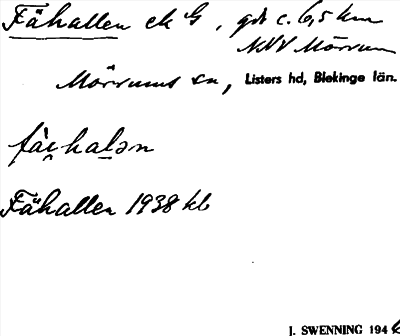 Fähallen ek G, gdr c. 6,5 km
NNV Mörrum
Mörrums sn, Listers hd, Blekinge län.
Fähallen 1938 kb
J. SWENNING 194